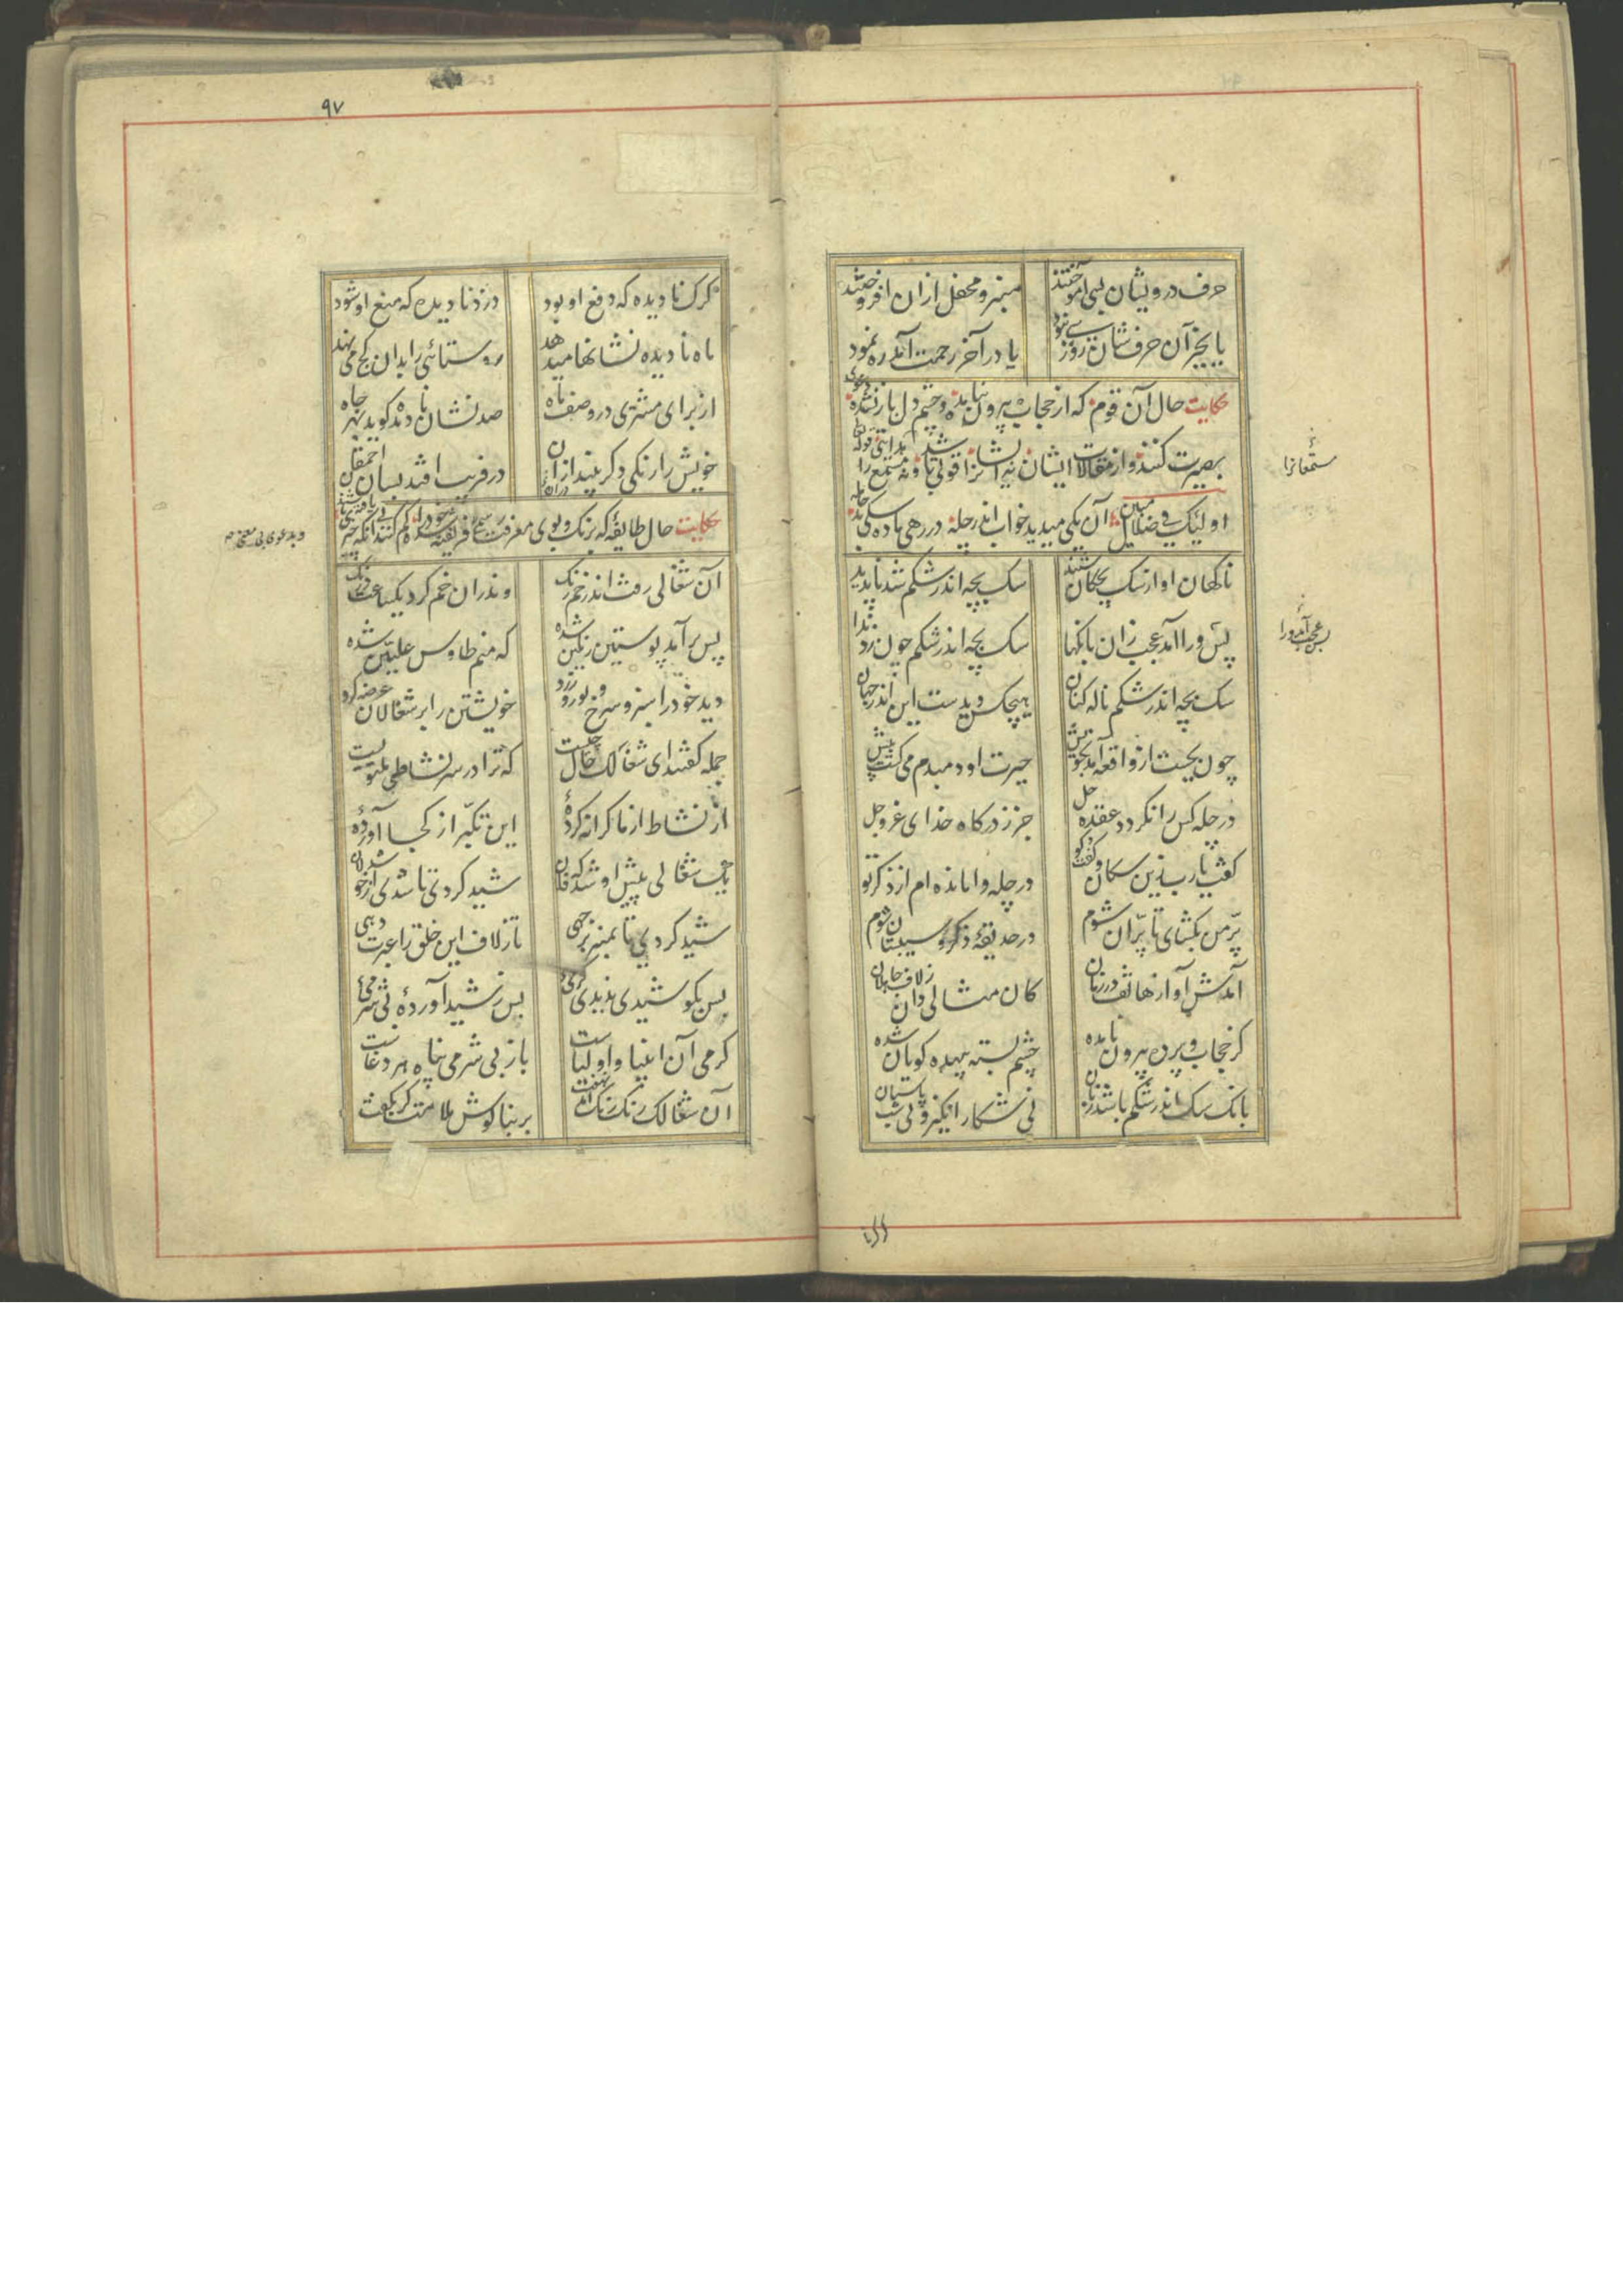 حرف درویشان بسی آموختند
منبر و محفل ازان افروختند
یا بجز آن حرفشان روزی نبود
یا در آخر رحمت آمد ره نمود
حکایت حال آن قوم که از حجاب بیرون نیامده و چشم دل باز نشده دعوی
بصیرت کنند و از مقالات ایشان نه ایشانرا قوتی باشد و نه مستمع را
اولئک فی ضلال مبین آن یکی میدید خواب اندر چله در رهی ماده سگی بد حامله
ناکهان آواز سک بچکان شنید
سک بچه اندر شکم شد ناپدید
پس ورا آمد عجب زان بانکها
سک بچه اندر شکم چون زد ندا
سک بچه اندر شکم ناله کنان
هیچکس دیدست این اندر جهان
چون بجست از واقعه آمد بخویش
حیرت او دمبدم می کشت بیش
در چله کس را نکردد عقده حل
جز ز درکاه خدای عز و جل
کفت یا رب زین سکان و کفت و کو
در چله وامانده ام از ذکر تو
پر من بکشای تا پران شوم
در حدیقهٔ ذکر و سیبستان شوم
آمدش آواز هاتف در زمان
کان مثالی دان ز لاف جاهلان
کز حجاب و پرده بیرون نامده
چشم بسته بیهده کویان شده
بانک سک اندر شکم باشد زیان
نی شکار انکیز و نی شب پاسبان
مستمعانرا
بس عجب آمد ورا
۹۷
کرک نادیده که دفع او بود
دزد نادیده که منع او شود
ماه نادیده نشانها میدهد
روستائی را بدان کج می نهد
از برای مشتری در وصف ماه
صد نشان نادیده کوید بهر جاه
خویش را رنکی دکر بیند ازان
در فریب افتد بسان احمقان
حکایت حال طایفهٔ که برنک و بوی معرفت فریفته شده خود را کم کنند
آن شغالی رفت اندر خم رنک
وندران خم کرد یکساعت درنک
پس بر آمد پوستین رنکین شده
که منم طاوس علیین شده
دید خود را سبز و سرخ و بور و زرد
خویشتن را بر شغالان عرضه کرد
جمله کفتند ای شغالک حال چیست
که ترا در سر نشاطی ملتویست
از نشاط از ما کرانه کردهٔ
این تکبر از کجا آوردهٔ
یک شغالی پیش او شد که فلان
شید کردی تا شدی از خوشدلان
شید کردی تا بمنبر برجهی
تا ز لاف این خلق را عبرت دهی
بس بکوشیدی بدیدی کرمیٔ
پس ز شید آوردهٔ بی شرمیٔ
کرمی آن انبیا و اولیاست
باز بی شرمی پناه هر دغاست
آن شغالک رنک رنک آمد نهفت
بر بناکوش ملامت کر بکفت